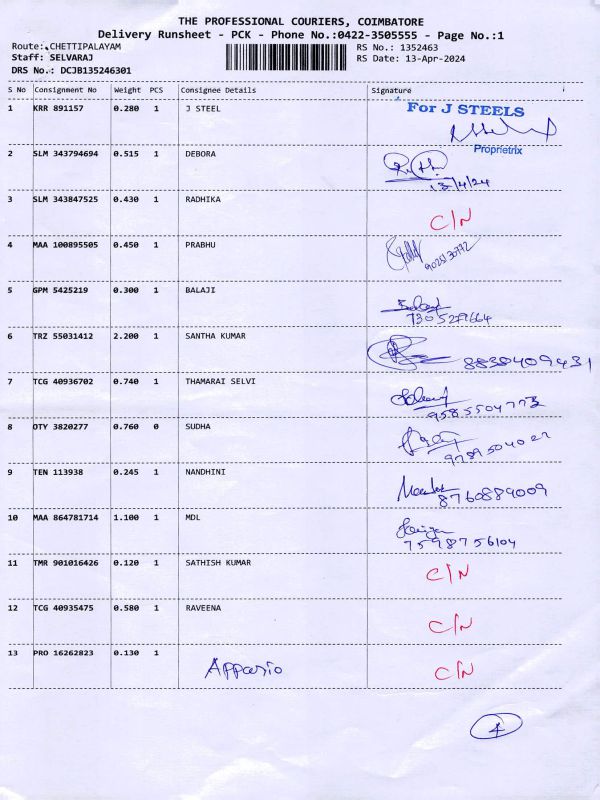 THE PROFESSIONAL COURIERS, COIMBATORE
Delivery Runsheet - PCK - Phone No.:0422-3505555 - Page No.:1
Route: CHETTIPALAYAM RS No.: 1352463
Staff: SELVARAJ RS Date: 13-Apr-2024
DRS No.: DCJB135246301
S No Consignment No Weight PCS Consignee Details Signature
1 KRR 891157 0.280 1 J STEEL For J STEELS
Proprietrix
2 SLM 343794694 0.515 1 DEBORA
13/4/24
3 SLM 343847525 0.430 1 RADHIKA C/N
4 MAA 100895505 0.450 1 PRABHU
5 GPM 5425219 0.300 1 BALAJI
7305279664
6 TRZ 55031412 2.200 1 SANTHA KUMAR 8838409431
7 TCG 40936702 0.740 1 THAMARAI SELVI
9585504773
8 OTY 3820277 0.760 0 SUDHA
9 TEN 113938 0.245 1 NANDHINI
8760889009
10 MAA 864781714 1.100 1 MDL
7598756104
11 TMR 901016426 0.120 1 SATHISH KUMAR C/N
12 TCG 40935475 0.580 1 RAVEENA C/N
13 PRO 16262823 0.130 1 Appasio C/N
4